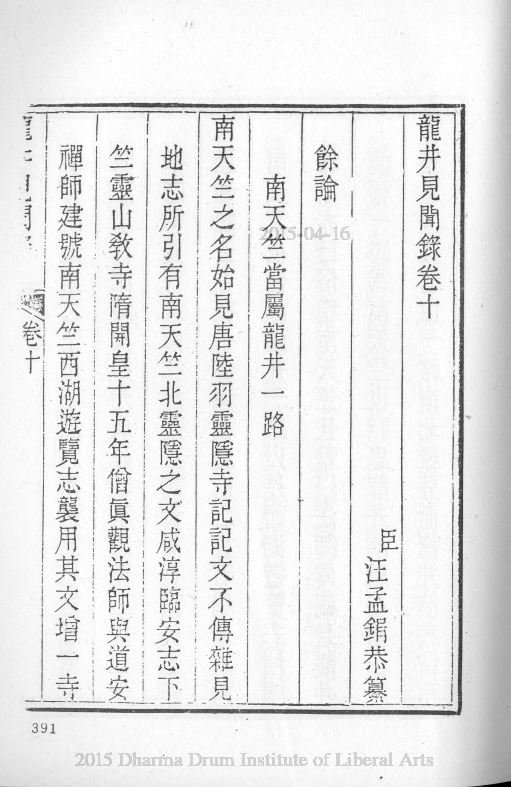 龍井見聞錄卷十
臣 汪孟鋗恭纂
餘論
南天竺當屬龍井一路
南天竺之名始見唐陸羽靈隱寺記記文不傳雜見
地志所引有南天竺北靈隱之文咸淳臨安志下
竺靈山敎寺隋開皇十五年僧眞觀法師與道安
禪師建號南天竺西湖遊覽志襲用其文增一寺
卷十
391
2015-04-16
2015 Dharma Drum Institute of Liberal Arts